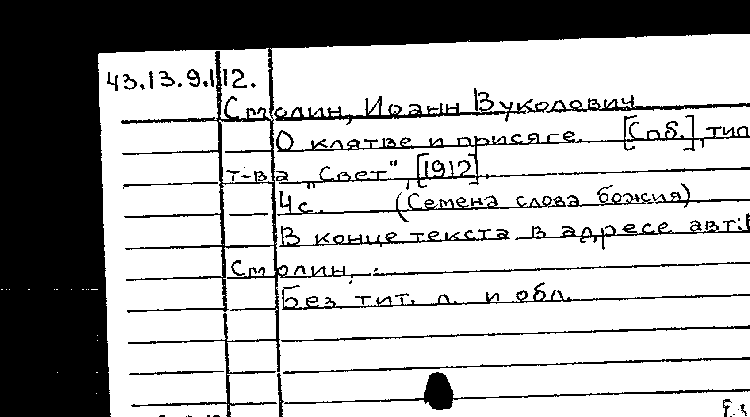 43.13.9.112.
Смолин, Иоанн Вуколович
О клятве и присяге. [Спб.], тип
т-ва "Свет", [1912].
4с. (Семена слова божия)
В конце текста в адресе авт.:
Смолин,
Без тит. л. и обл.